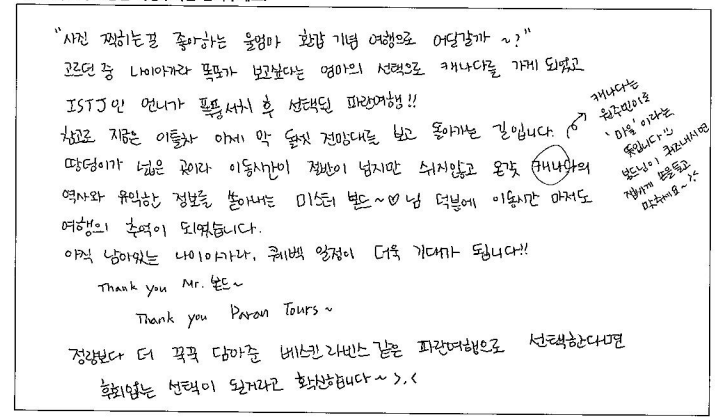 "사진 찍히는걸 좋아하는 울엄마 환갑 기념 여행으로 어딜갈까 ~?"
고르던 중 나이아가라 폭포가 보고싶다는 엄마의 선택으로 캐나다를 가게 되었고
ISTJ인 언니가 폭풍서치 후 선택된 파란여행!!
참고로 지금은 이틀차 이제 막 돌섬 전망대를 보고 돌아가는 길입니다.
땅덩이가 넓은 곳이라 이동시간이 절반이 넘지만 쉬지않고 온갖 캐나다의
역사와 유익한 정보를 쏟아내는 미스터 본드~♡님 덕분에 이동시간 마저도
여행의 추억이 되었습니다.
아직 남아있는 나이아가라, 퀘벡 일정이 더욱 기대가 됩니다!!
Thank you Mr. 본드~
Thank you Paran Tours~
정량보다 더 꾹꾹 담아준 베스킨라빈스 같은 파란여행으로 선택한다면
후회없는 선택이 될거라고 확신합니다~ >.<
캐나다는
원주민어로
'마을'이라는
뜻입니다!!
본드님이 퀴즈내시면
잽싸게 손을들고
말하세요~ >.<